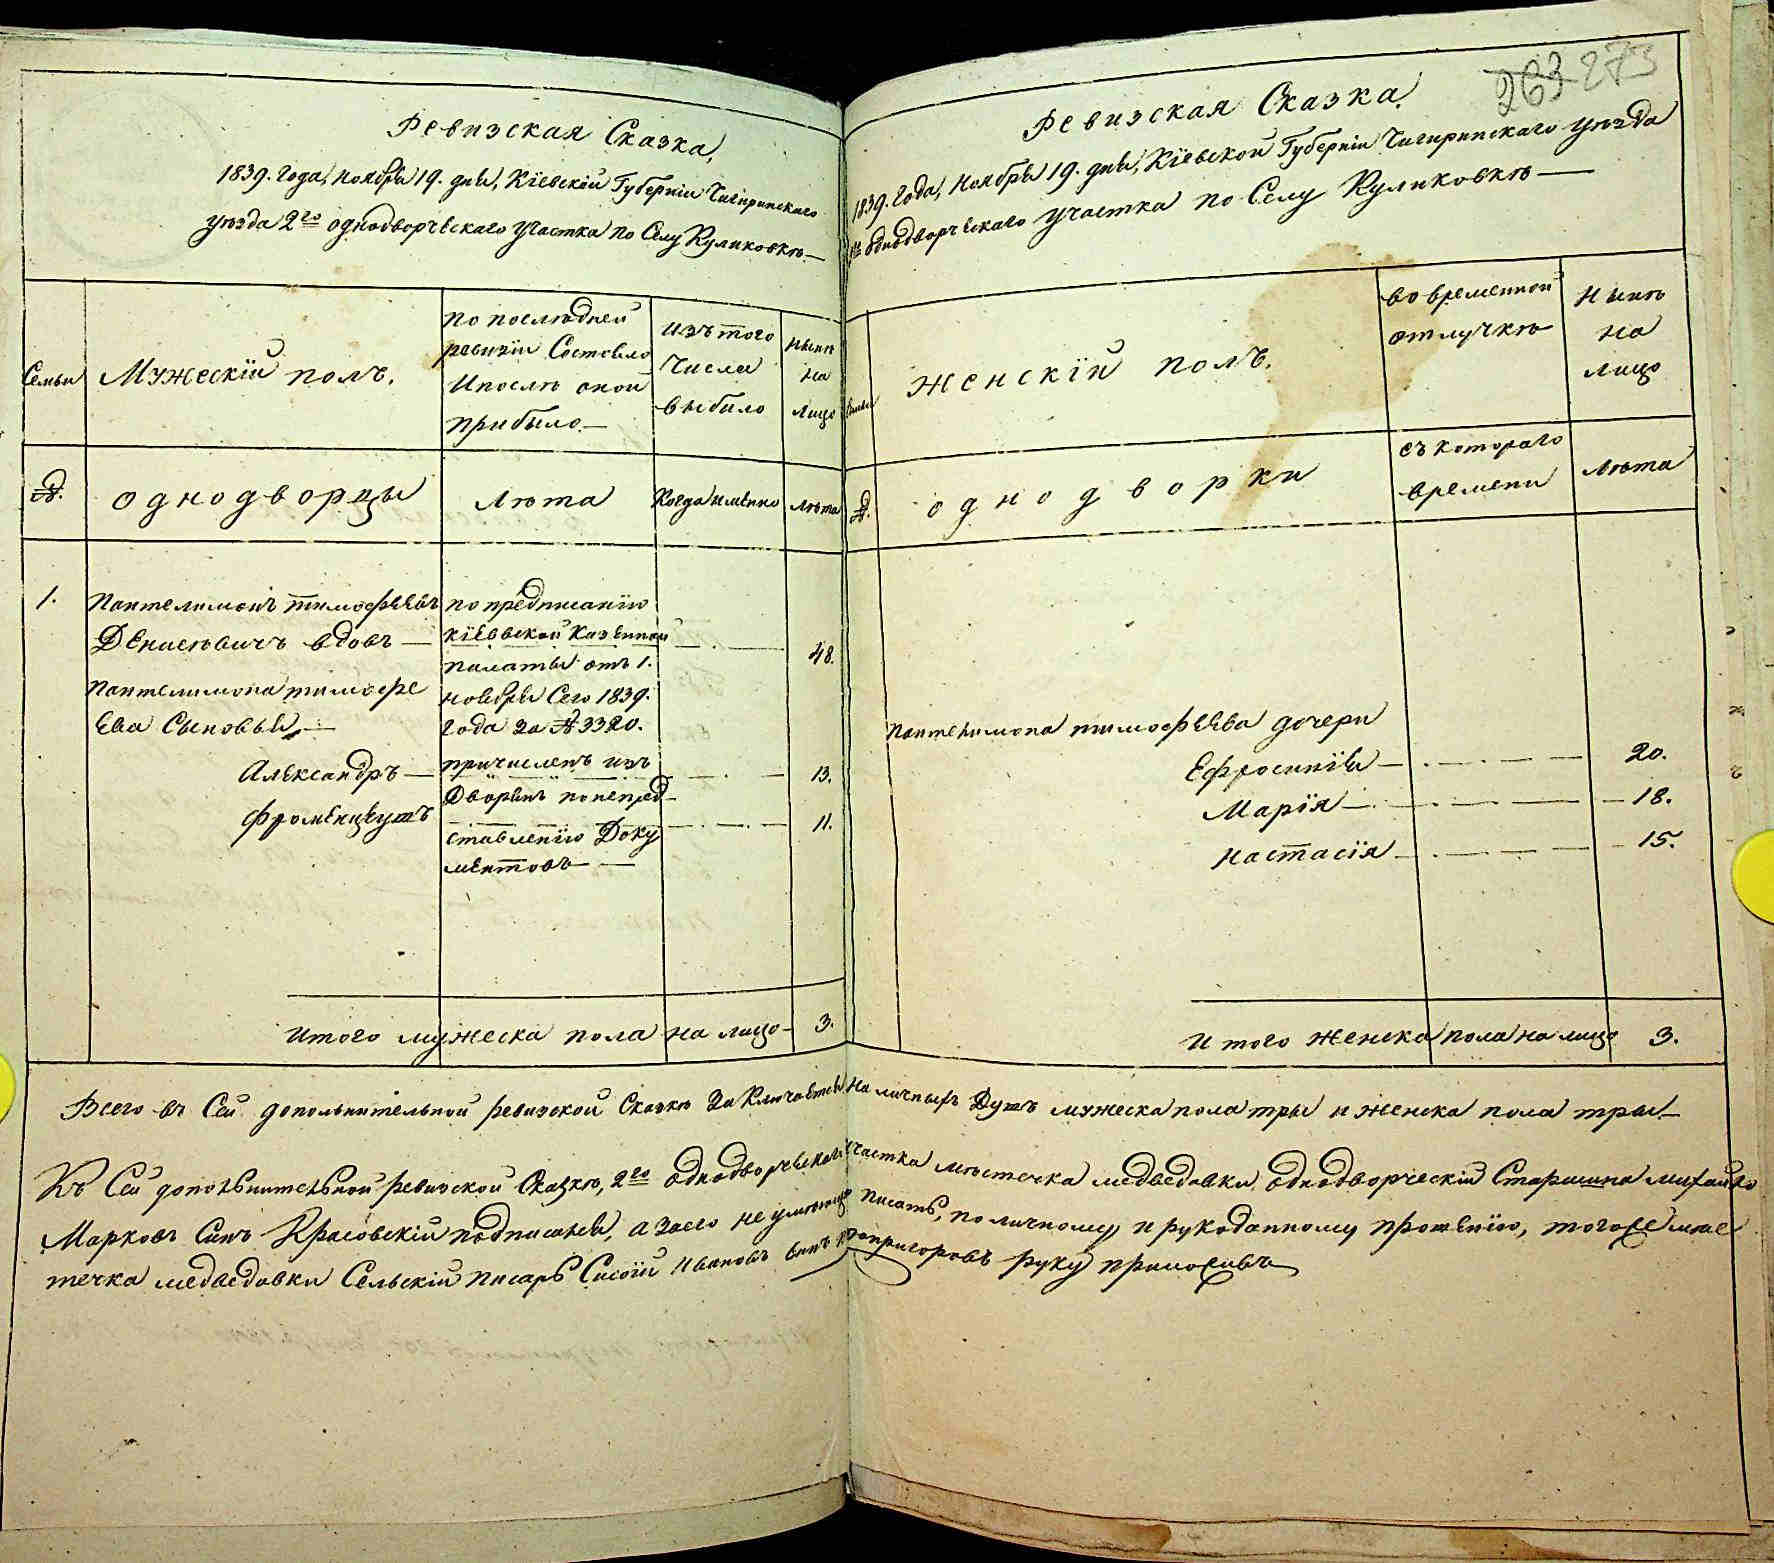 Ревизская Сказка,
1839. Года, Ноября 19. дня, Кіевской Губерніи Чигиринскаго
уѣзда 2го однодворческаго участка по Селу Куликовкѣ.—
Семьи
Мужескій полъ.
по послѣдней
ревизіи Состояло
И послѣ оной
прибыло.—
изъ того
Числа
выбыло
Нынѣ
на
лицо
№.
однодворцы
Лѣта
Когда именно
Лѣта
1.
Пантелимонъ тимофѣевъ
Денисѣвичъ вдовъ —
Пантелимона тимофе
Ева Сыновья, —
Александръ —
Фроменцеушъ
по предписанію
Кіевской Казенной
палаты отъ 1.
ноября Сего 1839.
года за № 3320.
причисленъ изъ
Дворянъ понепред-
ставленію Доку
ментовъ —
48.
13.
11.
Итого мужеска пола на лицо - 3.
263 273
Ревизская Сказка.
1839. Года, Ноября 19. дня, Кіевской Губерніи Чигиринскаго уѣзда
однодворческаго участка по Селу Куликовкѣ —
Семьи
Женскій полъ.
во временной
отлучкѣ
Нынѣ
на
лицо
№.
однодворки
съ котораго
времени
Лѣта
Пантелимона тимофѣева дочери
Ефросинія — 20.
Марія — 18.
Настасія — 15.
Итого женска пола на лицо 3.
Всего въ Сей дополнительной ревизской Сказкѣ Заключается наличныхъ Душъ мужеска пола три и женска пола три.—
Къ Сей дополнительной ревизской Сказкѣ, 2го однодворческаго участка мѣстечка медведовки однодворческій Старшина михайло
Марковъ Сынъ Красовскій подписался, а заего неумѣюща писать, по личному и рукоданному прошенію, тогоже мѣс
течка медведовки Сельскій писарь Сисой Ивановъ Сынъ руку приложивъ